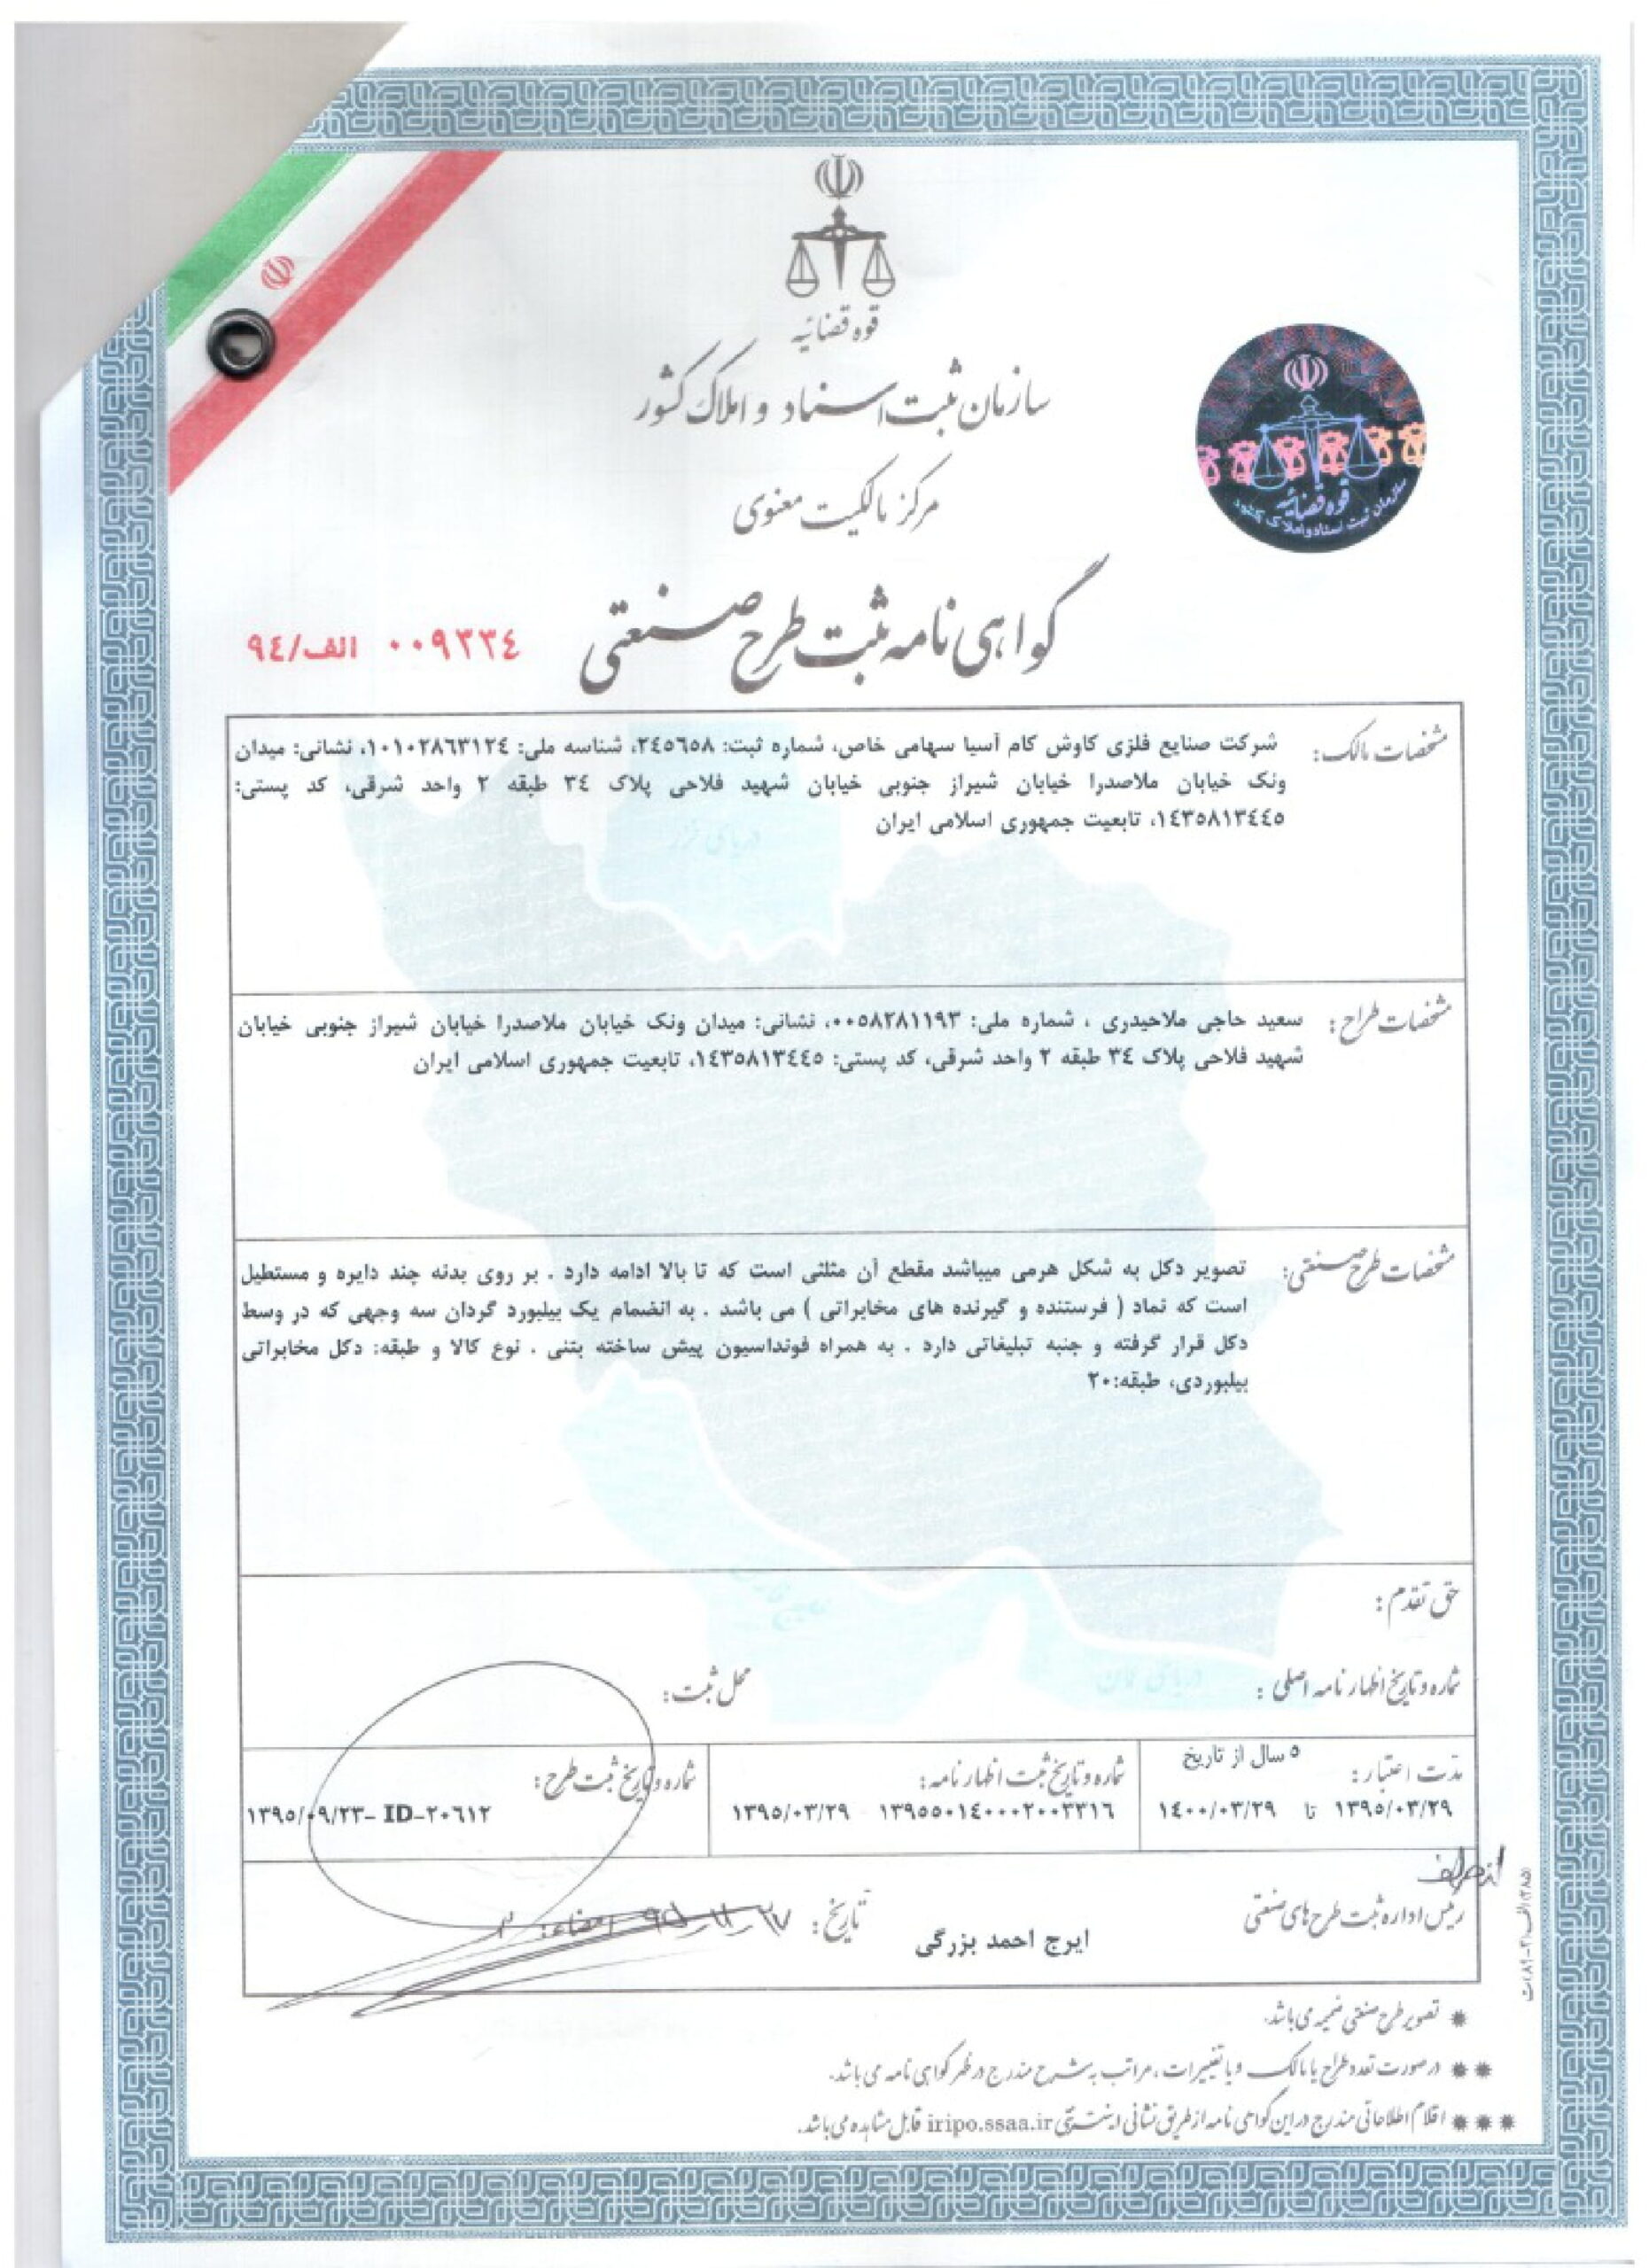 قوه قضائیه
سازمان ثبت اسناد و املاک کشور
مرکز مالکیت معنوی
قوه قضائیه
سازمان ثبت اسناد و املاک کشور
گواهی نامه ثبت طرح صنعتی
۰۰۹۳۳٤ الف/۹٤
مشخصات مالک:
شرکت صنایع فلزی کاوش کام آسیا سهامی خاص، شماره ثبت: ۲٤٥٦٥۸، شناسه ملی: ۱۰۱۰۲۸٦۳۱۲٤، نشانی: میدان
ونک خیابان ملاصدرا خیابان شیراز جنوبی خیابان شهید فلاحی پلاک ۳٤ طبقه ۲ واحد شرقی، کد پستی:
۱٤۳٥۸۱۳٤٤٥، تابعیت جمهوری اسلامی ایران
دریای خزر
مشخصات طراح:
سعید حاجی ملاحیدری ، شماره ملی: ۰۰٥۸۲۸۱۱۹۳، نشانی: میدان ونک خیابان ملاصدرا خیابان شیراز جنوبی خیابان
شهید فلاحی پلاک ۳٤ طبقه ۲ واحد شرقی، کد پستی: ۱٤۳٥۸۱۳٤٤٥، تابعیت جمهوری اسلامی ایران
مشخصات طرح صنعتی:
تصویر دکل به شکل هرمی میباشد مقطع آن مثلثی است که تا بالا ادامه دارد . بر روی بدنه چند دایره و مستطیل
است که نماد ( فرستنده و گیرنده های مخابراتی ) می باشد . به انضمام یک بیلبورد گردان سه وجهی که در وسط
دکل قرار گرفته و جنبه تبلیغاتی دارد . به همراه فونداسیون پیش ساخته بتنی . نوع کالا و طبقه: دکل مخابراتی
بیلبوردی، طبقه:۲۰
حق تقدم :
شماره و تاریخ اظهارنامه اصلی :
محل ثبت:
مدت اعتبار: ٥ سال از تاریخ
۱۳۹٥/۰۳/۲۹ تا ۱٤۰۰/۰۳/۲۹
شماره و تاریخ ثبت اظهارنامه:
۱۳۹٥٥۰۱٤۰۰۰۲۰۰۳۳۱٦ ۱۳۹٥/۰۳/۲۹
شماره و تاریخ ثبت طرح:
۱۳۹٥/۰۹/۲۳- ID-۲۰٦۱۲
از طرف
رئیس اداره ثبت طرح های صنعتی
ایرج احمد بزرگی
تاریخ: امضاء:
✹ تصویر طرح صنعتی ضمیمه می باشد.
✹✹ در صورت تعدد طراح یا مالک و یا تغییرات ، مراتب به شرح مندرج در ظهر گواهی نامه می باشد.
✹✹✹ اقلام اطلاعاتی مندرج در این گواهی نامه از طریق نشانی اینترنتی iripo.ssaa.ir قابل مشاهده می باشد.